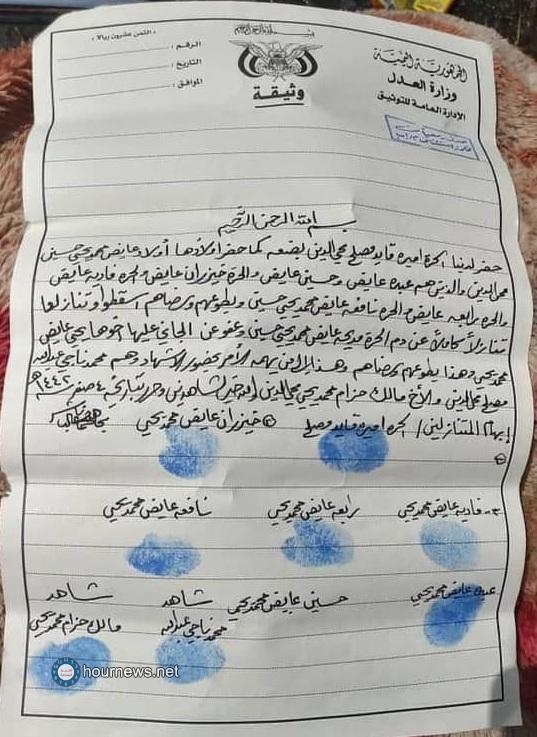 الجمهورية اليمنية
وزارة العدل
الإدارة العامة للتوثيق
بسم الله الرحمن الرحيم
وثيقة
« الثمن عشرون ريالاً »
الرقم :
التاريخ :
الموافق :
بسم الله الرحمن الرحيم
حضر لدينا الحره اميره قايد مصلح محي الدين بضعه كما حضر اولادها أولاد عايض محمد يحيى حسين
محي الدين والذين هم عبده عايض وحسين عايض والحره خيزران عايض والحره فاديه عايض
والحره رابعه عايض والحره نافعه عايض محمد يحيى حسين وبطوعهم ورضاهم اسقطوا وتنازلوا
تنازلاً كاملاً عن دم الحره مديحه عايض محمد يحيى حسين وعفو عن الجاني عليها اخوها يحيى عايض
محمد يحيى وهذا بطوعهم برضاهم وهذا ابرا من يهمه الأمر بحضور الاشهاد وهم محمد ناجي عبدالله
مصلح محي الدين والأخ مالك حزام محمد يحيى محي الدين والله خير الشاهدين وحرر بتاريخ ٤ صفر ١٤٤٢هـ
إبهام المتنازلين/ الحره اميره قايد مصلح خيزران عايض محمد يحيى
٣- فاديه عايض محمد يحيى رابعه عايض محمد يحيى نافعه عايض محمد يحيى
عبده عايض محمد يحيى حسين عايض محمد يحيى شاهد شاهد
محمد ناجي عبدالله مالك حزام محمد يحيى
hournews.net